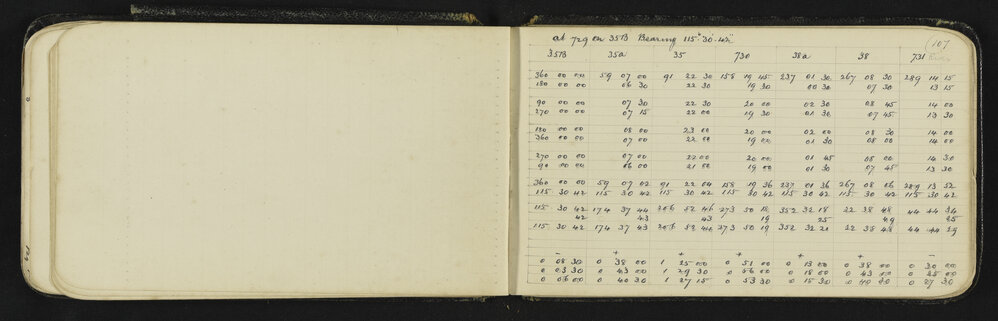 at 729 on 35B Bearing 115° 30' 42" 107
35B 35a 35 730 38a 38 731
360 00 00 59 07 00 91 22 30 158 19 45 237 01 30 267 08 30 289 14 15
180 00 00 06 30 22 30 19 30 00 30 07 30 13 15
90 00 00 07 30 22 30 20 00 02 30 08 45 14 00
270 00 00 07 15 22 00 19 30 01 30 07 45 13 30
180 00 00 08 00 23 00 20 00 02 00 08 30 14 00
360 00 00 07 00 22 00 19 00 01 30 08 00 14 00
270 00 00 07 00 22 00 20 00 01 45 08 00 14 30
90 00 00 06 00 21 00 19 00 01 30 07 45 13 30
360 00 00 59 07 02 91 22 04 158 19 36 237 01 36 267 08 06 289 13 52
115 30 42 115 30 42 115 30 42 115 30 42 115 30 42 115 30 42 115 30 42
115 30 42 174 37 44 206 52 46 273 50 18 352 32 18 22 38 48 44 44 34
42 43 43 19 25 49 25
115 30 42 174 37 43 206 52 44 273 50 19 352 32 21 22 38 48 44 44 29
- + + + + + -
0 08 30 0 38 00 1 25 00 0 51 00 0 13 00 0 38 00 0 30 00
0 03 30 0 43 00 1 29 30 0 56 00 0 18 00 0 43 00 0 25 00
0 06 00 0 40 30 1 27 15 0 53 30 0 15 30 0 40 30 0 27 30